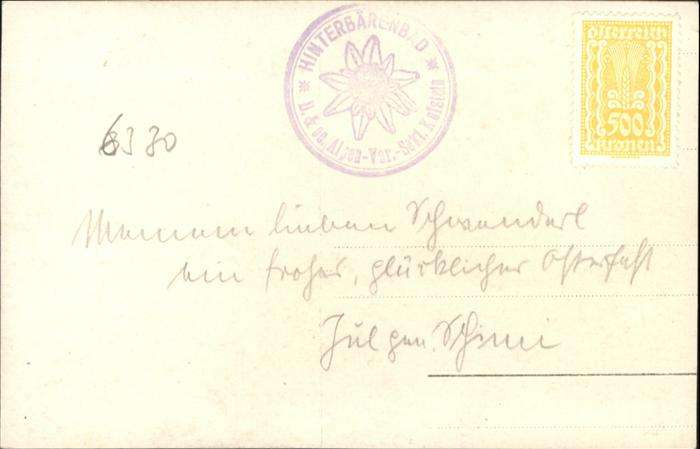 * HINTERBÄRENBAD *
D. & Oe. Alpen-Ver.-Sekt. Kufstein
österreich
500
kronen
6330
Meinem lieben Schwanderl
ein frohes, glückliches Osterfest